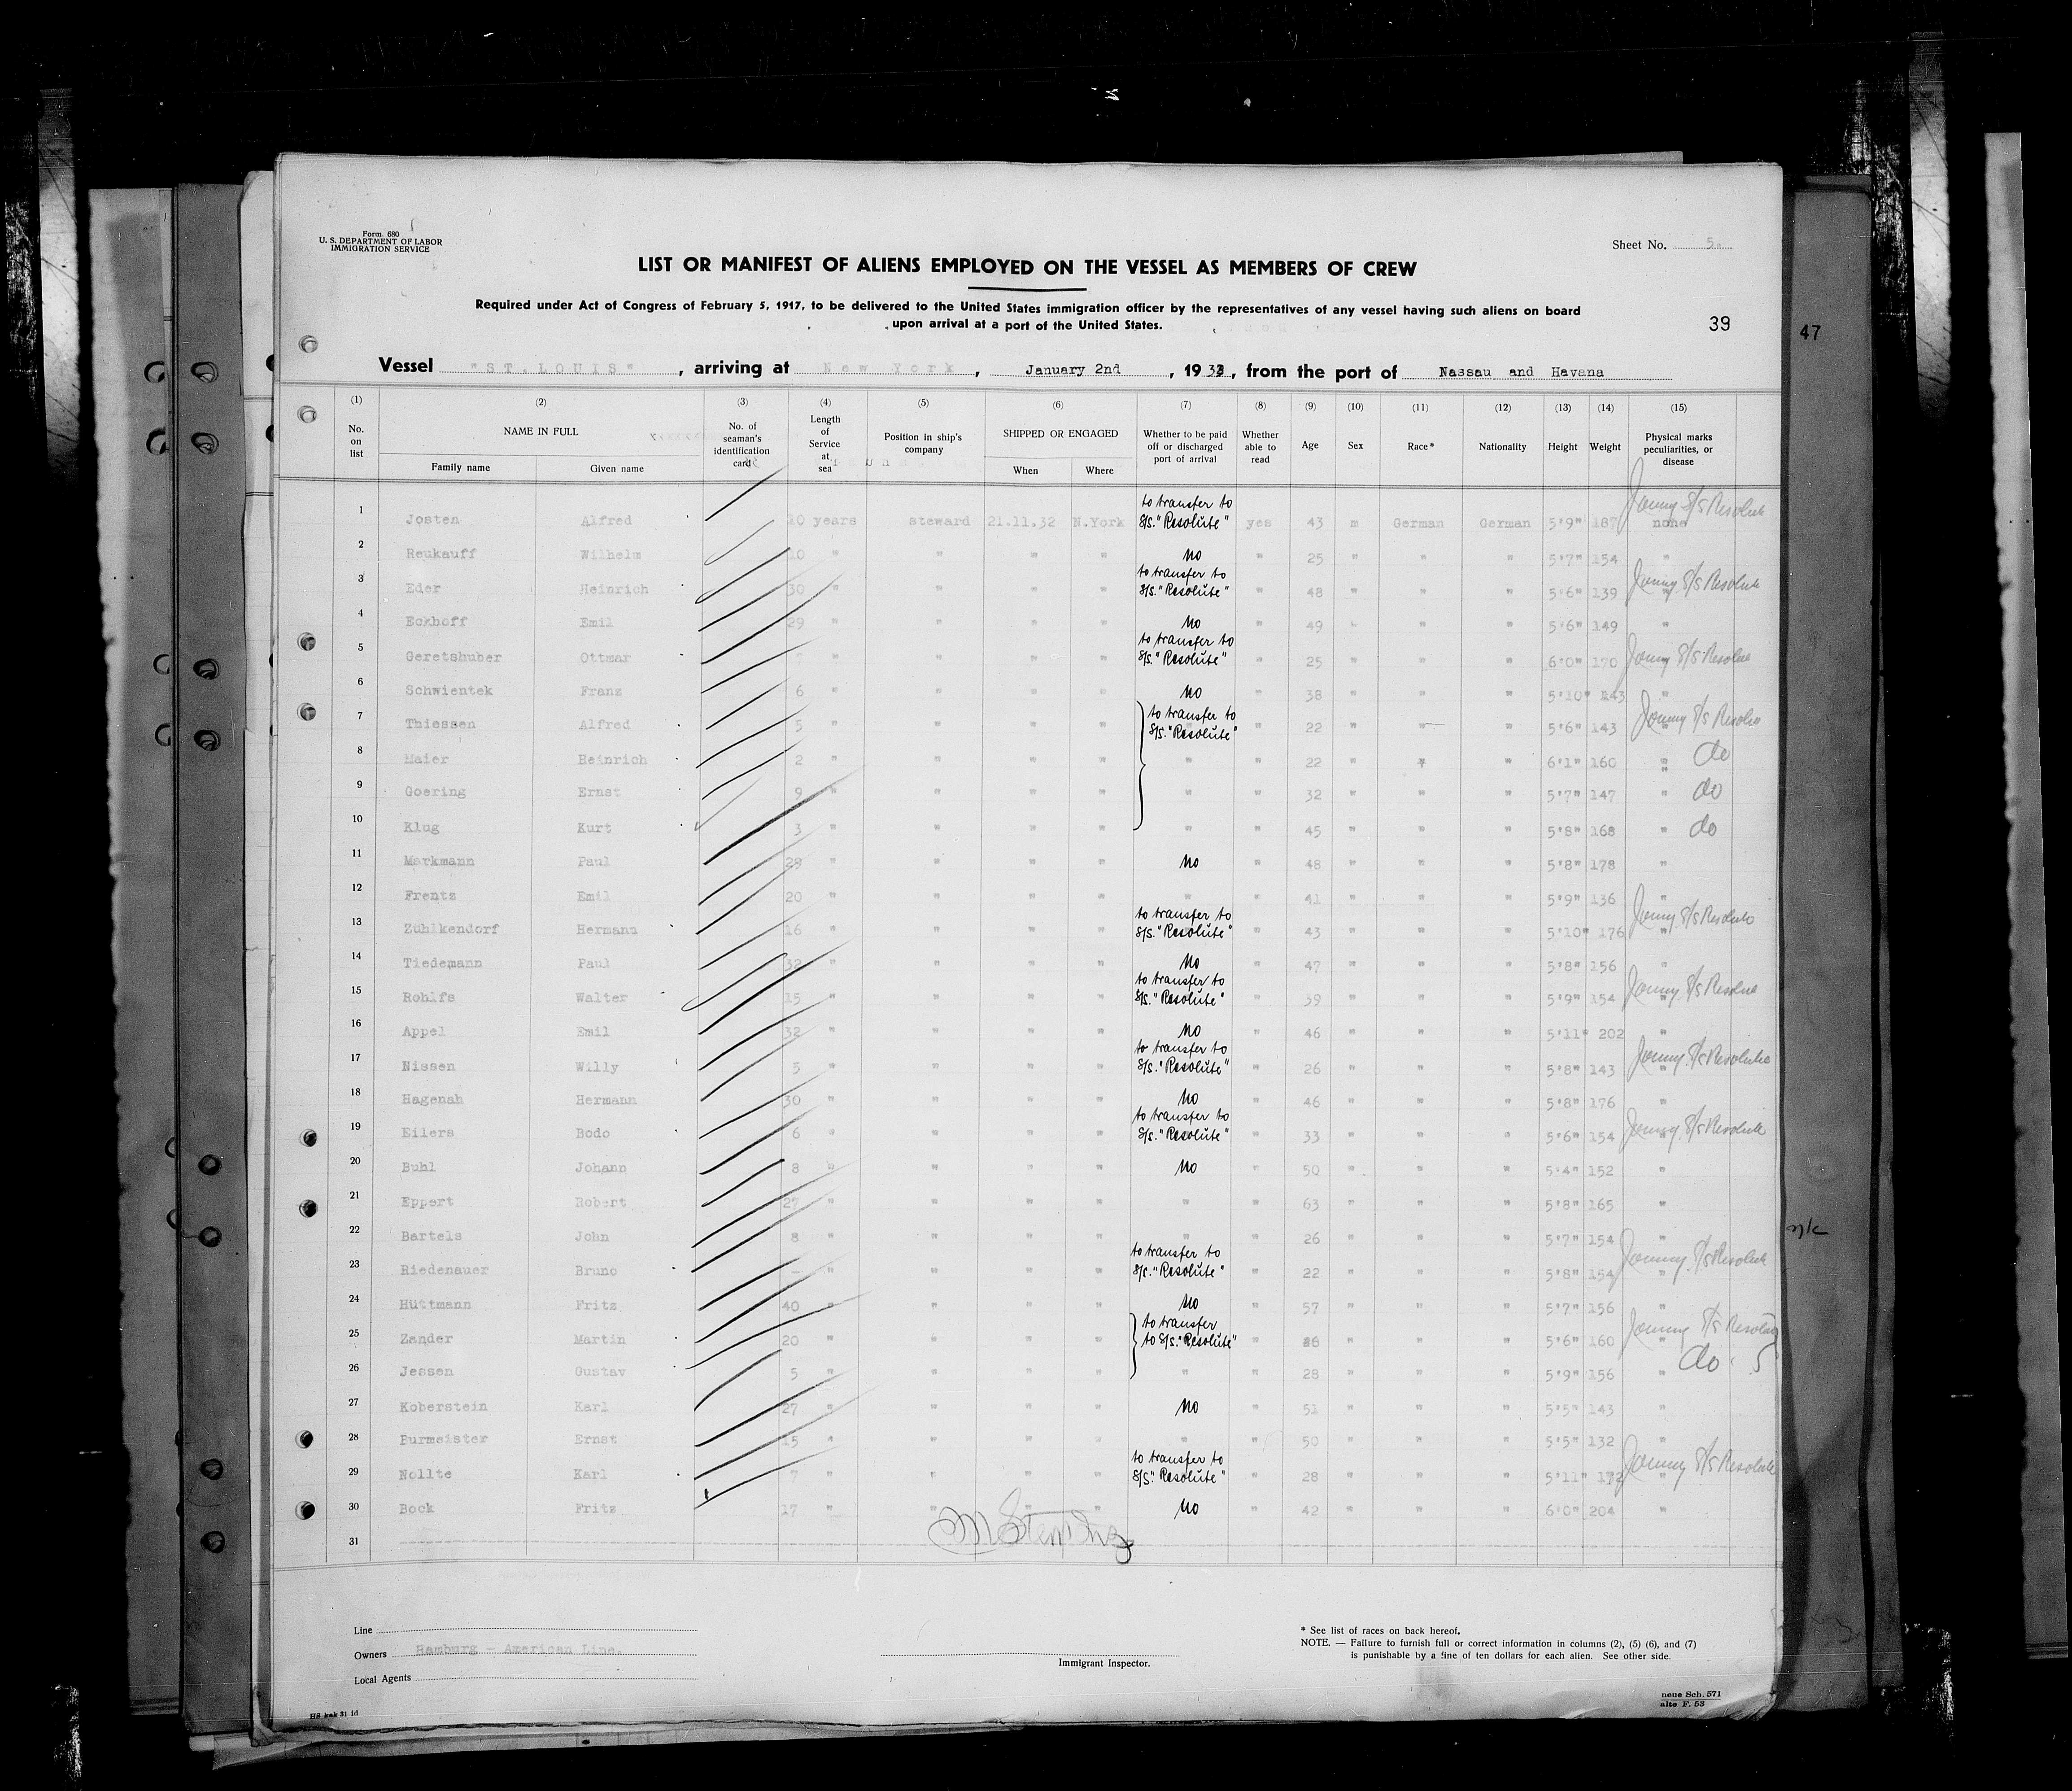 Form 680
U. S. DEPARTMENT OF LABOR
IMMIGRATION SERVICE
Sheet No. 5.
LIST OR MANIFEST OF ALIENS EMPLOYED ON THE VESSEL AS MEMBERS OF CREW
Required under Act of Congress of February 5, 1917, to be delivered to the United States immigration officer by the representatives of any vessel having such aliens on board
upon arrival at a port of the United States.
39
47
Vessel "ST. LOUIS", arriving at New York, January 2nd, 1933, from the port of Nassau and Havana
(1) (2) (3) (4) (5) (6) (7) (8) (9) (10) (11) (12) (13) (14) (15)
No. on list NAME IN FULL Family name Given name No. of seaman's identification card Length of Service at sea Position in ship's company SHIPPED OR ENGAGED When Where Whether to be paid off or discharged port of arrival Whether able to read Age Sex Race* Nationality Height Weight Physical marks peculiarities, or disease
1 Josten Alfred 20 years steward 21.11.32 N.York to transfer to S/S. "Resolute" yes 43 m German German 5'9" 187 none S/S Resolute
2 Reukauff Wilhelm 10 " " " " No " 25 " " " 5'7" 154 "
3 Eder Heinrich 30 " " " " to transfer to S/S. "Resolute" " 48 " " " 5'6" 139 " S/S Resolute
4 Eckhoff Emil 29 " " " " No " 49 " " " 5'6" 149 "
5 Geretshuber Ottmar 7 " " " " to transfer to S/S. "Resolute" " 25 " " " 6'0" 170 " S/S Resolute
6 Schwientek Franz 6 " " " " No " 38 " " " 5'10" 143 "
7 Thiessen Alfred 5 " " " " to transfer to S/S. "Resolute" " 22 " " " 5'6" 143 " S/S Resolute
8 Maier Heinrich 2 " " " " " " 22 " " " 6'1" 160 " do
9 Goering Ernst 9 " " " " " " 32 " " " 5'7" 147 " do
10 Klug Kurt 3 " " " " " " 45 " " " 5'8" 168 " do
11 Markmann Paul 29 " " " " No " 48 " " " 5'8" 178 "
12 Frentz Emil 20 " " " " " " 41 " " " 5'9" 136 "
13 Zühlkendorf Hermann 16 " " " " to transfer to S/S. "Resolute" " 43 " " " 5'10" 176 " S/S Resolute
14 Tiedemann Paul 32 " " " " No " 47 " " " 5'8" 156 "
15 Rohlfs Walter 15 " " " " to transfer to S/S. "Resolute" " 39 " " " 5'9" 154 " S/S Resolute
16 Appel Emil 32 " " " " No " 46 " " " 5'11" 202 "
17 Nissen Willy 5 " " " " to transfer to S/S. "Resolute" " 26 " " " 5'8" 143 " S/S Resolute
18 Hagenah Hermann 30 " " " " No " 46 " " " 5'8" 176 "
19 Eilers Bodo 6 " " " " to transfer to S/S. "Resolute" " 33 " " " 5'6" 154 " S/S Resolute
20 Buhl Johann 8 " " " " No " 50 " " " 5'4" 152 "
21 Eppert Robert 27 " " " " " " 63 " " " 5'8" 165 "
22 Bartels John 8 " " " " " " 26 " " " 5'7" 154 "
23 Riedenauer Bruno - " " " " to transfer to S/S. "Resolute" " 22 " " " 5'8" 154 " S/S Resolute
24 Hüttmann Fritz 40 " " " " No " 57 " " " 5'7" 156 "
25 Zander Martin 20 " " " " to transfer to S/S. "Resolute" " " " " 5'6" 160 S/S Resolute
26 Jessen Gustav 5 " " " " " " 28 " " " 5'9" 156 " do
27 Koberstein Karl 27 " " " " No " 51 " " " 5'5" 143 "
28 Burmeister Ernst 15 " " " " " " 50 " " " 5'5" 132 "
29 Nollte Karl 7 " " " " to transfer to S/S. "Resolute" " 28 " " " 5'11" 172 " S/S Resolute
30 Bock Fritz 17 " " " " No " 42 " " " 6'0" 204 "
31
Line
Owners Hamburg - American Line.
Local Agents
Immigrant Inspector.
* See list of races on back hereof.
NOTE. — Failure to furnish full or correct information in columns (2), (5) (6), and (7)
is punishable by a fine of ten dollars for each alien. See other side.
neue Sch. 571
alte F. 53